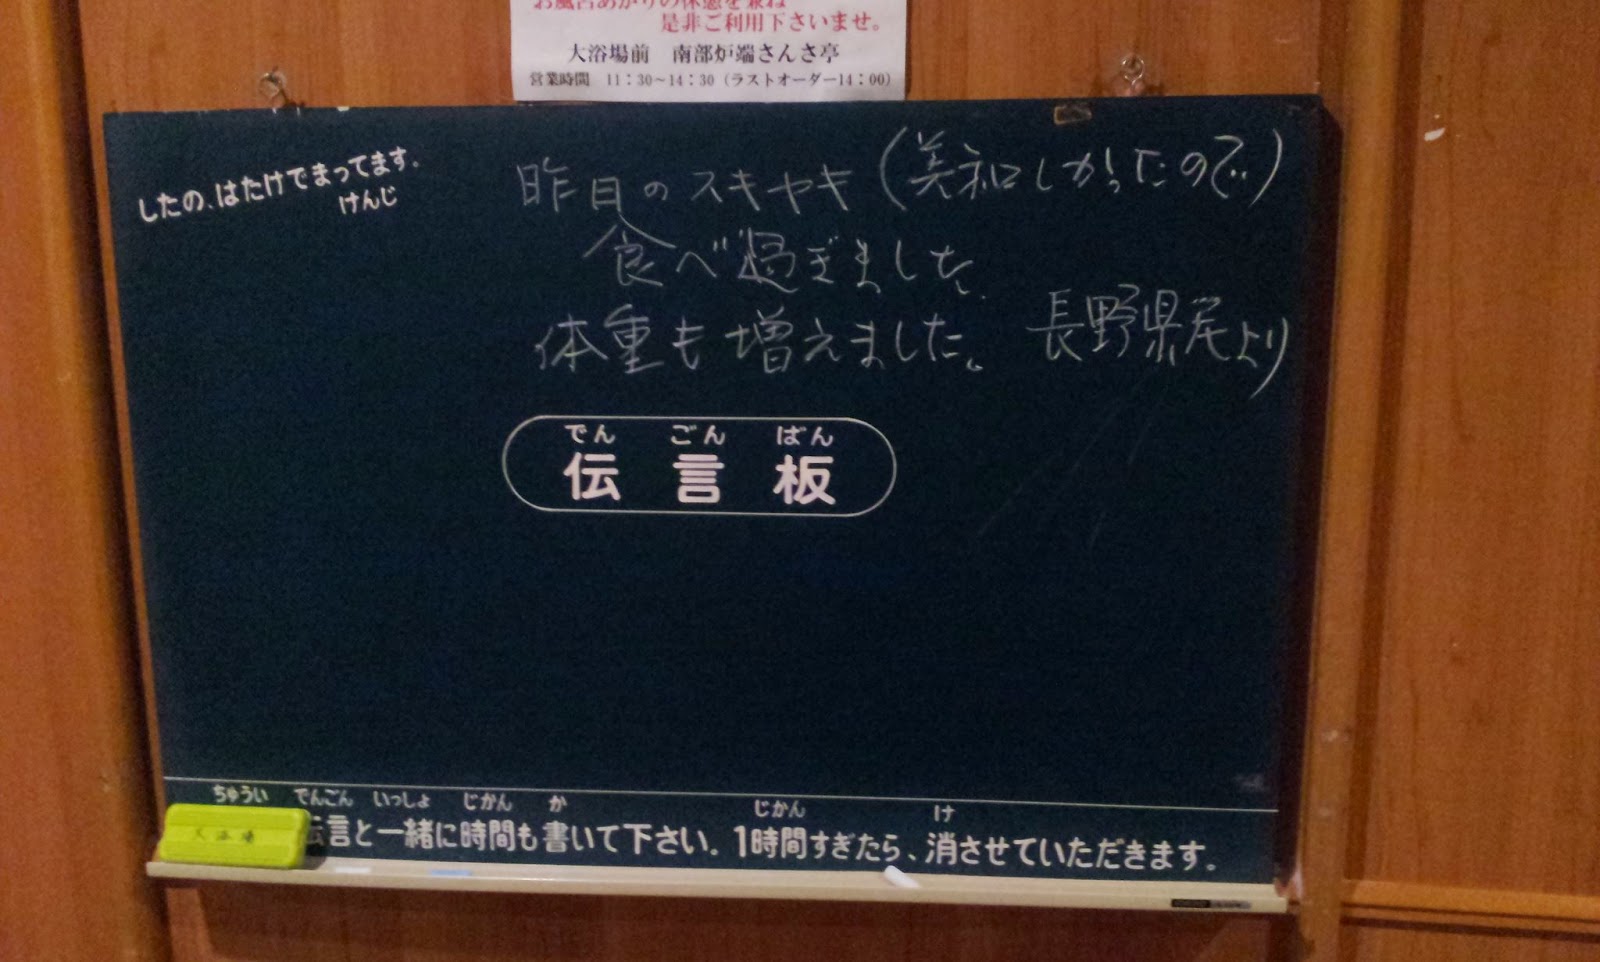 お風呂あがりの休憩を兼ね
是非ご利用下さいませ。
大浴場前 南部炉端さんさ亭
営業時間 11:30～14:30（ラストオーダー14:00）
したの、はたけでまってます。
けんじ
昨日のスキヤキ（美和しかったので）
食べ過ぎました。
体重も増えました。 長野県 より
でん ごん ばん
伝言板
ちゅうい でんごん いっしょ じかん か じかん け
伝言と一緒に時間も書いて下さい。1時間すぎたら、消させていただきます。
大浴場